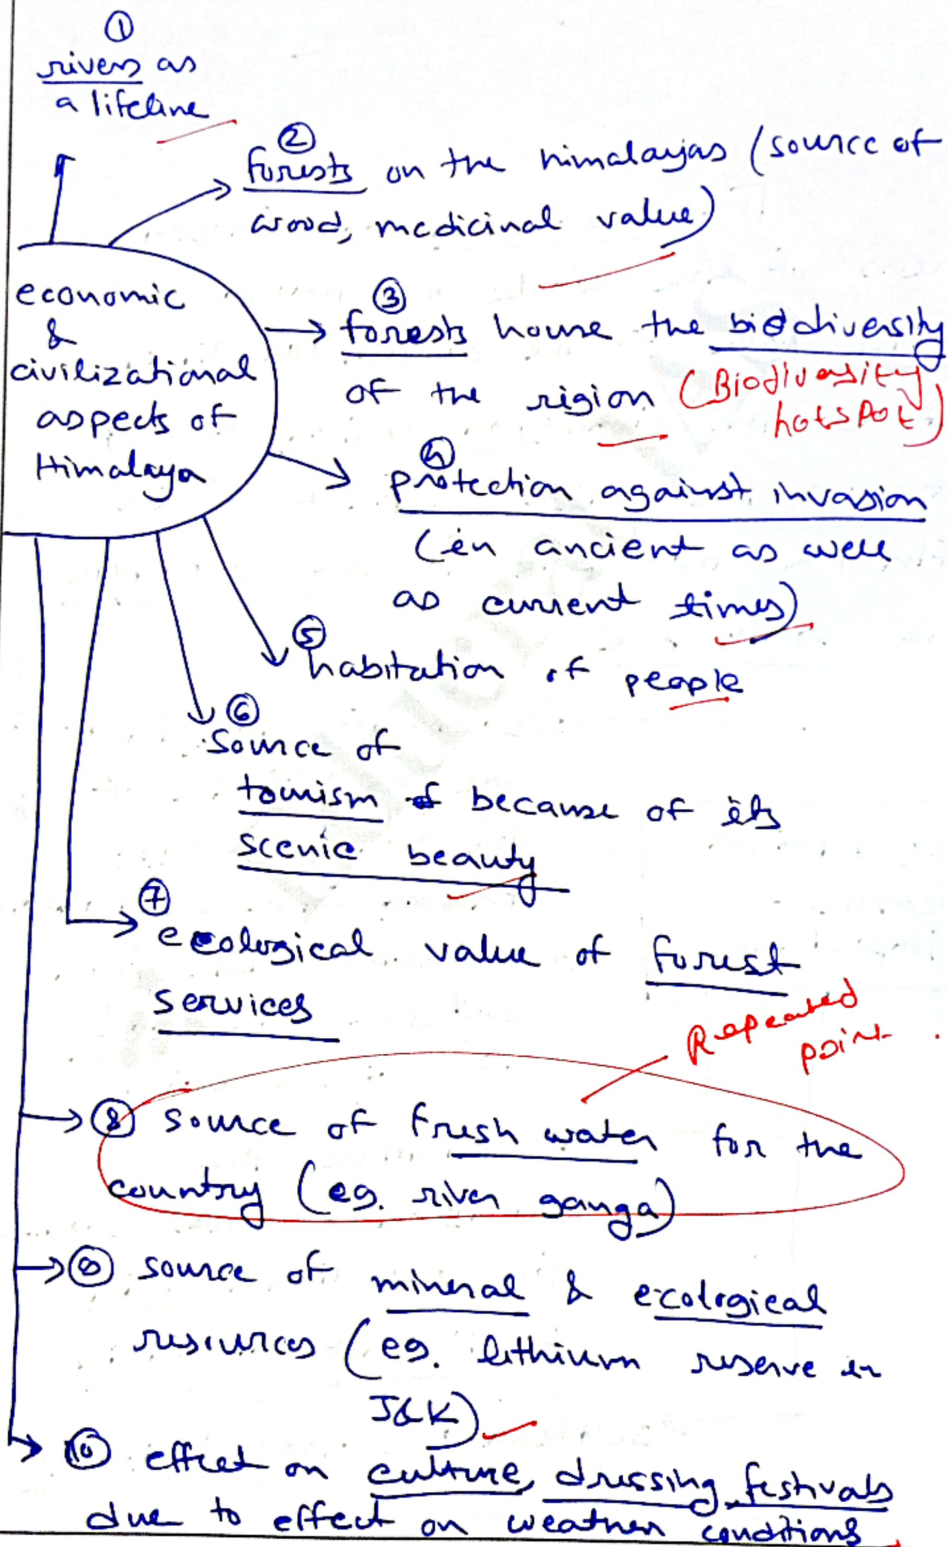 ①
rivers as
a lifeline
②
forests on the himalayas (source of
wood, medicinal value)
economic
&
civilizational
aspects of
Himalaya
③
forests house the biodiversity
of the rigion (Biodiversity
hotspot)
④
protection against invasion
(in ancient as well
as current times)
⑤
habitation of people
⑥
source of
tourism because of its
scenic beauty
⑦
ecological value of forest
services
Repeated
point
⑧ source of fresh water for the
country (eg. river ganga)
source of mineral & ecological
resources (eg. lithium reserve in
J&K)
⑩ effect on culture, dressing, festivals
due to effect on weather conditions